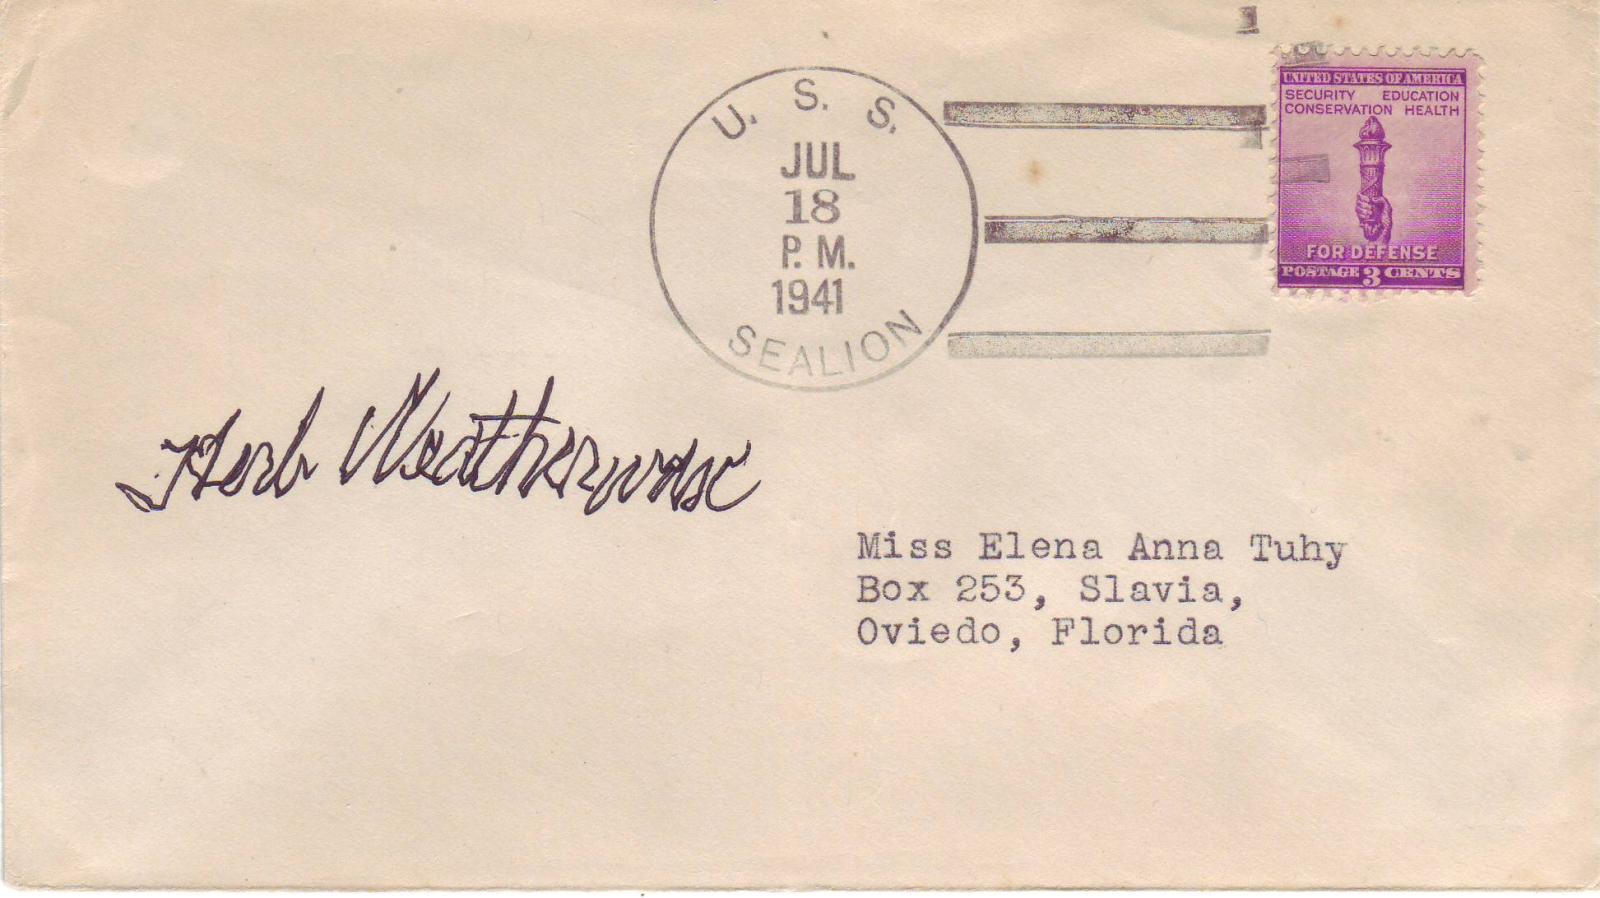 U. S. S.
JUL
18
P. M.
1941
SEALION
UNITED STATES OF AMERICA
SECURITY EDUCATION
CONSERVATION HEALTH
FOR DEFENSE
POSTAGE 3 CENTS
Herb Weatherwax
Miss Elena Anna Tuhy
Box 253, Slavia,
Oviedo, Florida